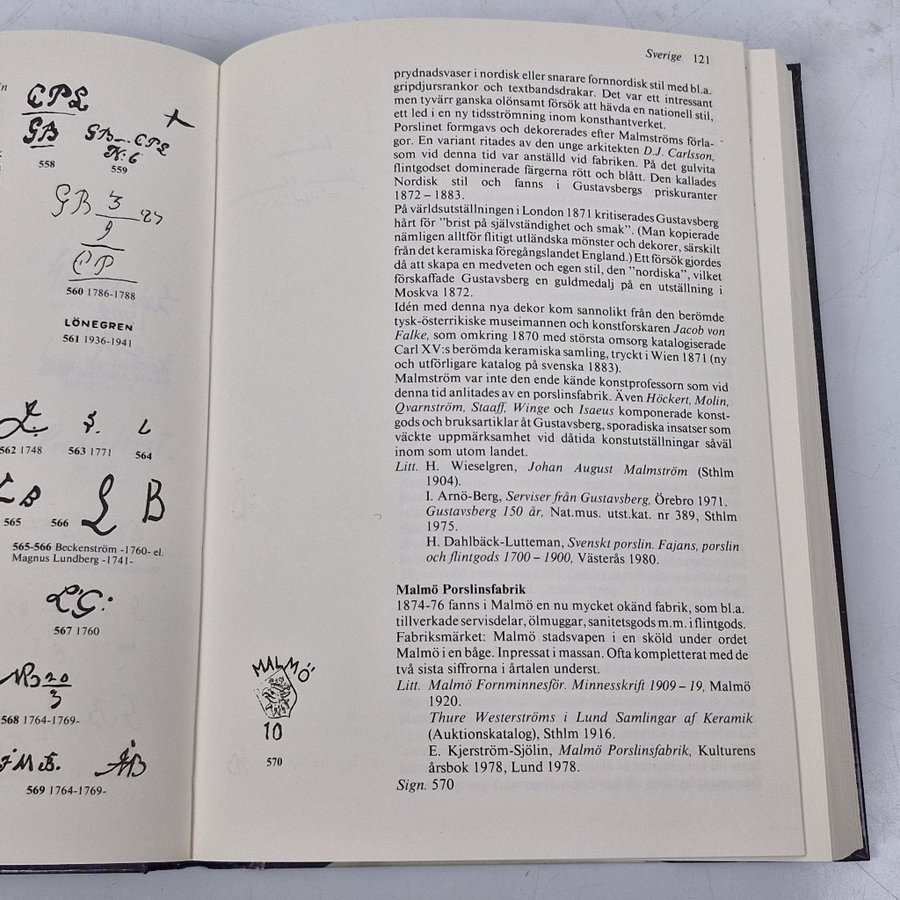 CPL
GB
558
GB-.. CPL
N:6
559
GB 3
9
87
CP
560 1786-1788
LÖNEGREN
561 1936-1941
562 1748
563 1771
L
564
L B
565
566
L B
565-566 Beckenström -1760- el.
Magnus Lundberg -1741-
L:G:
567 1760
NB 20
3
568 1764-1769-
ÅB
569 1764-1769-
Sverige 121
prydnadsvaser i nordisk eller snarare fornnordisk stil med bl.a.
gripdjursrankor och textbandsdrakar. Det var ett intressant
men tyvärr ganska olönsamt försök att hävda en nationell stil,
ett led i en ny tidsströmning inom konsthantverket.
Porslinet formgavs och dekorerades efter Malmströms förla-
gor. En variant ritades av den unge arkitekten D.J. Carlsson,
som vid denna tid var anställd vid fabriken. På det gulvita
flintgodset dominerade färgerna rött och blått. Den kallades
Nordisk stil och fanns i Gustavsbergs priskuranter
1872 – 1883.
På världsutställningen i London 1871 kritiserades Gustavsberg
hårt för "brist på självständighet och smak". (Man kopierade
nämligen alltför flitigt utländska mönster och dekorer, särskilt
från det keramiska föregångslandet England.) Ett försök gjordes
då att skapa en medveten och egen stil, den "nordiska", vilket
förskaffade Gustavsberg en guldmedalj på en utställning i
Moskva 1872.
Idén med denna nya dekor kom sannolikt från den berömde
tysk-österrikiske museimannen och konstforskaren Jacob von
Falke, som omkring 1870 med största omsorg katalogiserade
Carl XV:s berömda keramiska samling, tryckt i Wien 1871 (ny
och utförligare katalog på svenska 1883).
Malmström var inte den ende kände konstprofessorn som vid
denna tid anlitades av en porslinsfabrik. Även Höckert, Molin,
Qvarnström, Staaff, Winge och Isaeus komponerade konst-
gods och bruksartiklar åt Gustavsberg, sporadiska insatser som
väckte uppmärksamhet vid dåtida konstutställningar såväl
inom som utom landet.
Litt. H. Wieselgren, Johan August Malmström (Sthlm
1904).
I. Arnö-Berg, Serviser från Gustavsberg, Örebro 1971.
Gustavsberg 150 år, Nat.mus. utst.kat. nr 389, Sthlm
1975.
H. Dahlbäck-Lutteman, Svenskt porslin. Fajans, porslin
och flintgods 1700 – 1900, Västerås 1980.
Malmö Porslinsfabrik
1874-76 fanns i Malmö en nu mycket okänd fabrik, som bl.a.
tillverkade servisdelar, ölmuggar, sanitetsgods m.m. i flintgods.
Fabriksmärket: Malmö stadsvapen i en sköld under ordet
Malmö i en båge. Inpressat i massan. Ofta kompletterat med de
två sista siffrorna i årtalen underst.
Litt. Malmö Fornminnesför. Minnesskrift 1909 – 19, Malmö
1920.
Thure Westerströms i Lund Samlingar af Keramik
(Auktionskatalog), Sthlm 1916.
E. Kjerström-Sjölin, Malmö Porslinsfabrik, Kulturens
årsbok 1978, Lund 1978.
Sign. 570
MALMÖ
10
570